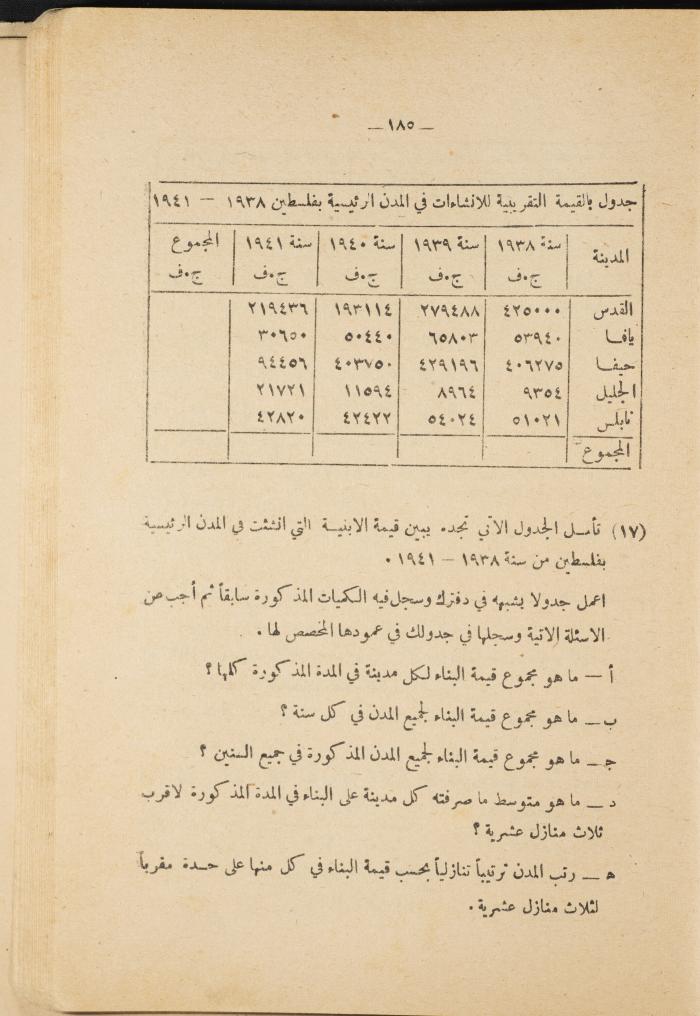 — ١٨٥ —
جدول بالقيمة التقريبية للانشاءات في المدن الرئيسية بفلسطين ١٩٣٨ — ١٩٤١
المدينة سنة ١٩٣٨ سنة ١٩٣٩ سنة ١٩٤٠ سنة ١٩٤١ المجموع
ج.ف ج.ف ج.ف ج.ف ج.ف
القدس ٤٢٥٠٠٠ ٢٧٩٤٨٨ ١٩٣١١٤ ٢١٩٤٣٦
يافا ٥٣٩٤٠ ٦٥٨٠٣ ٥٠٤٤٠ ٣٠٦٥٠
حيفا ٤٠٦٢٧٥ ٤٢٩١٩٦ ٤٠٣٧٥٠ ٩٤٤٥٦
الجليل ٩٣٥٤ ٨٩٦٤ ١١٥٩٤ ٢١٧٢١
نابلس ٥١٠٢١ ٥٤٠٢٤ ٤٢٤٢٢ ٤٢٨٢٠
المجموع
(١٧) تأمل الجدول الآتي تجده يبين قيمة الابنية التي انشئت في المدن الرئيسية
بفلسطين من سنة ١٩٣٨ – ١٩٤١ .
اعمل جدولا يشبهه في دفترك وسجل فيه الكميات المذكورة سابقاً ثم أجب عن
الاسئلة الاتية وسجلها في جدولك في عمودها المخصص لها .
أ — ما هو مجموع قيمة البناء لكل مدينة في المدة المذكورة كلها ؟
ب — ما هو مجموع قيمة البناء لجميع المدن في كل سنة ؟
جـ — ما هو مجموع قيمة البناء لجميع المدن المذكورة في جميع السنين ؟
د — ما هو متوسط ما صرفته كل مدينة على البناء في المدة المذكورة لاقرب
ثلاث منازل عشرية ؟
ه — رتب المدن ترتيباً تنازلياً بحسب قيمة البناء في كل منها على حدة مقرباً
لثلاث منازل عشرية .